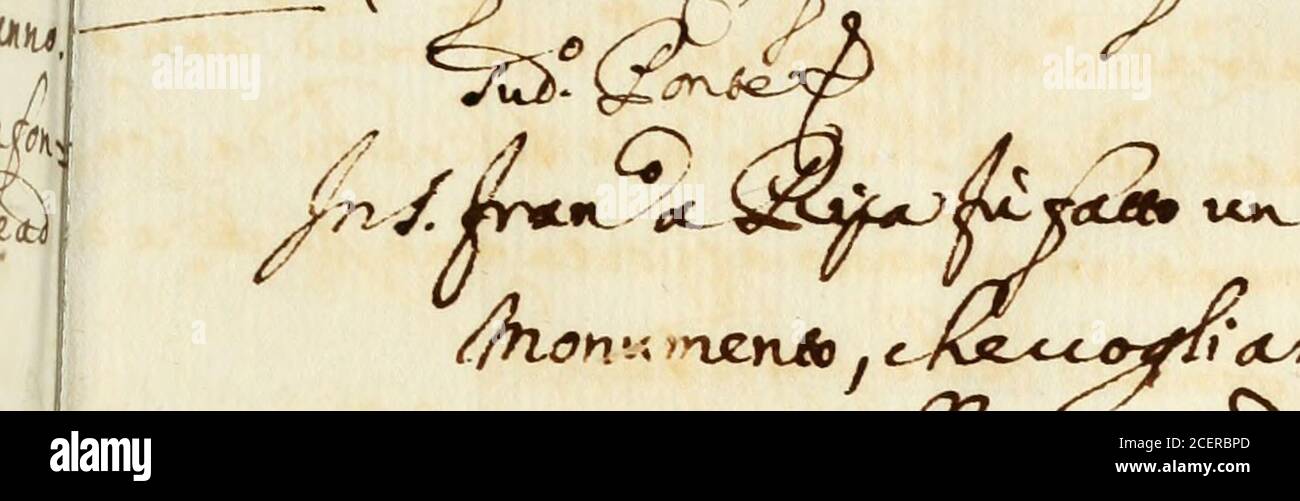 anno.
fon=
ead
Sud.º Ponte
In S. Fran.º a Ripa fù fatto un
Monumento, che uoglia
alamy
alamy
a
a
alamy
Image ID: 2CERBPD
www.alamy.com